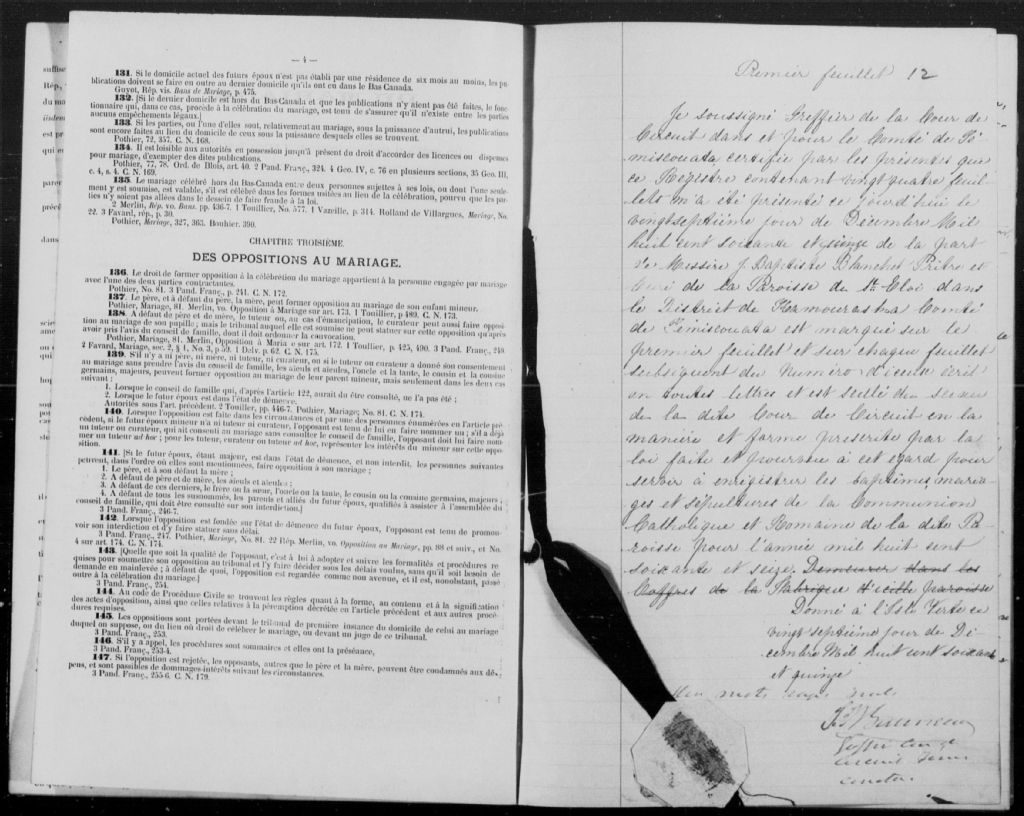 — 4 —
131. Si le domicile actuel des futurs époux n'est pas établi par une résidence de six mois au moins, les pu-
blications doivent se faire en outre au dernier domicile qu'ils ont eu dans le Bas Canada.
Guyot, Rép. vis. Bans de Mariage, p. 475.
132. [Si le dernier domicile est hors du Bas-Canada et que les publications n'y aient pas été faites, le fonc-
tionnaire qui, dans ce cas, procède à la célébration du mariage, est tenu de s'assurer qu'il n'existe entre les parties
aucuns empêchements légaux.]
133. Si les parties, ou l'une d'elles sont, relativement au mariage, sous la puissance d'autrui, les publications
sont encore faites au lieu du domicile de ceux sous la puissance desquels elles se trouvent.
Pothier, 72, 357. C. N. 168.
134. Il est loisible aux autorités en possession jusqu'à présent du droit d'accorder des licences ou dispenses
pour mariage, d'exempter des dites publications.
Pothier, 77, 78. Ord. de Blois, art. 40. 2 Pand. Franç., 324. 4 Geo. IV, c. 76 en plusieurs sections, 35 Geo. III,
c. 4, s. 4. C. N. 169.
135. Le mariage célébré hors du Bas-Canada entre deux personnes sujettes à ses lois, ou dont l'une seule-
ment y est soumise, est valable, s'il est célébré dans les formes usitées au lieu de la célébration, pourvu que les par-
ties n'y soient pas allées dans le dessein de faire fraude à la loi.
2 Merlin, Rép. vo. Bans. pp. 436-7. 1 Toullier, No. 577. 1 Vazeille, p. 314. Rolland de Villargues, Mariage, No.
22. 3 Favard, rép., p. 30.
Pothier, Mariage, 327, 363. Bouhier. 390.
CHAPITRE TROISIÈME.
DES OPPOSITIONS AU MARIAGE.
136. Le droit de former opposition à la célébration du mariage appartient à la personne engagée par mariage
avec l'une des deux parties contractantes.
Pothier, No. 81. 3 Pand. Franç., p. 241. C. N. 172.
137. Le père, et à défaut du père, la mère, peut former opposition au mariage de son enfant mineur.
Pothier, Mariage, 81. Merlin, vo. Opposition à Mariage sur art. 173. 1 Touillier, p 489. C. N. 173.
138. A défaut de père et de mère, le tuteur ou, au cas d'émancipation, le curateur peut aussi faire opposi-
tion au mariage de son pupille; mais le tribunal auquel elle est soumise ne peut statuer sur cette opposition qu'après
avoir pris l'avis du conseil de famille, dont il doit ordonner la convocation.
Pothier, Mariage, 81. Merlin, Opposition à Maria e sur art. 172. 1 Toullier, p. 425, 490. 3 Pand. Franç., 249.
2 Favard, Mariage, sec. 2, § 1, No. 3, p 59. 1 Delv. p. 62. C. N. 175.
139. S'il n'y a ni père, ni mère, ni tuteur, ni curateur, ou si le tuteur ou curateur a donné son consentement
au mariage sans prendre l'avis du conseil de famille, les aïeuls et aïeules, l'oncle et la tante, le cousin et la cousine
germains, majeurs, peuvent former opposition au mariage de leur parent mineur, mais seulement dans les deux cas
suivant :
1. Lorsque le conseil de famille qui, d'après l'article 122, aurait du être consulté, ne l'a pas été ;
2. Lorsque le futur époux est dans l'état de démence.
Autorités sous l'art. précédent. 2 Touiller, pp. 446-7. Pothier, Mariage; No. 81. C. N. 174.
140. Lorsque l'opposition est faite dans les circonstances et par une des personnes énumérées en l'article pré-
cédent, si le futur époux mineur n'a ni tuteur ni curateur, l'opposant est tenu de lui en faire nommer un ; s'il a déjà
un tuteur ou curateur, qui ait consenti au mariage sans consulter le conseil de famille, l'opposant doit lui faire nom-
mer un tuteur ad hoc ; pour les tuteur, curateur ou tuteur ad hoc, représenter les intérêts du mineur sur cette oppo-
sition.
141. [Si le futur époux, étant majeur, est dans l'état de démence, et non interdit, les personnes suivantes
peuvent, dans l'ordre où elles sont mentionnées, faire opposition à son mariage ;
1. Le père, et à son défaut la mère ;
2. A défaut de père et de mère, les aïeuls et aïeules ;
3. A défaut de ces derniers, le frère ou la sœur, l'oncle ou la tante, le cousin ou la cousine germains, majeurs ;
4. A défaut de tous les susnommés, les parents et alliés du futur époux, qualifiés à assister à l'assemblée du
conseil de famille, qui doit être consulté sur son interdiction.]
3 Pand. Franç., 246-7.
142. Lorsque l'opposition est fondée sur l'état de démence du futur époux, l'opposant est tenu de promou-
voir son interdiction et d'y faire statuer sans délai.
3 Pand. Franç., 247. Pothier, Mariage, No. 81. 22 Rép. Merlin, vo. Opposition au Mariage, pp. 88 et suiv., et No.
4 sur art. 174. C. N. 174.
143. [Quelle que soit la qualité de l'opposant, c'est à lui à adopter et suivre les formalités et procédures re-
quises pour soumettre son opposition au tribunal et l'y faire décider sous les délais voulus, sans qu'il soit besoin de
demande en mainlevée ; à défaut de quoi, l'opposition est regardée comme non avenue, et il est, nonobstant, passé
outre à la célébration du mariage.]
3 Pand. Franç., 254.
144. Au code de Procédure Civile se trouvent les règles quant à la forme, au contenu et à la signification
des actes d'opposition, ainsi que celles relatives à la péremption décrétée en l'article précédent et aux autres procé-
dures requises.
145. Les oppositions sont portées devant le tribunal de première instance du domicile de celui au mariage
duquel on s'oppose, ou du lieu où droit de célébrer le mariage, ou devant un juge de ce tribunal.
3 Pand. Franç., 253.
146. S'il y a appel, les procédures sont sommaires et elles ont la préséance.
3 Pand. Franç., 253-4.
147. Si l'opposition est rejetée, les opposants, autres que le père et la mère, peuvent être condamnés aux dé-
pens, et sont passibles de dommages-intérêts suivant les circonstances.
3 Pand. Franç., 255-6. C. N. 179.
Premier feuillet 12
Je soussigné Greffier de la Cour de
Circuit dans et pour le Comté de Té-
miscouata certifie par les présentes que
ce Registre contenant vingt quatre feuil-
lets m'a été présenté ce jourd'hui le
vingtseptième jour de Décembre Mil
huit cent soixante et quinze de la part
de Messire J Baptiste Blanchet Prêtre et
Curé de la Paroisse de St Eloi dans
le District de Kamouraska Comté
de Témiscouata est marqué sur le
premier feuillet et sur chaque feuillet
subséquent du Numéro d'icelui écrit
en toutes lettres et est scellé du sceau
de la dite Cour de Circuit en la
manière et forme prescrite par la
loi faite et pourvue à cet égard pour
servir à enrégistrer les baptêmes, maria-
ges et sépultures de la Communion
Catholique et Romaine de la dite Pa-
roisse pour l'année mil huit cent
soixante et seize. Demeurer dans les
Coffres de la Fabrique d'icelle paroisse
Donné à l'Isle Verte ce
vingt septième jour de Dé-
cembre Mil huit cent soixante
et quinze
mots rayés nuls